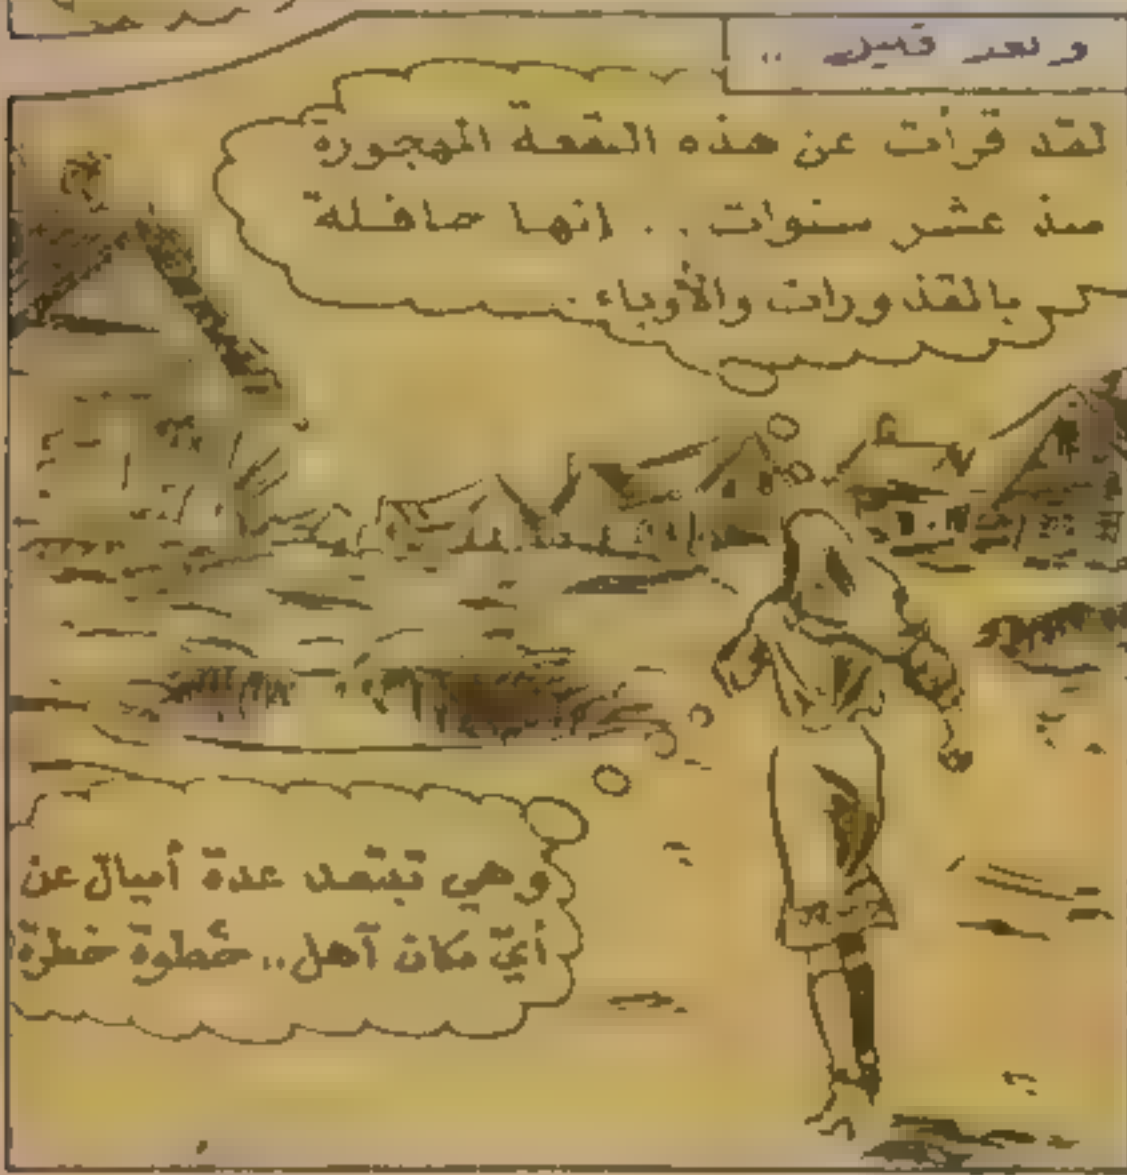 وبعد قليل ..
لقد قرأت عن هذه البقعة المهجورة
منذ عشر سنوات .. إنها حافلة
بالقذورات والأوباء .
وهي تبتعد عدة أميال عن
أيّ مكان آهل .. خُطوة خطرة